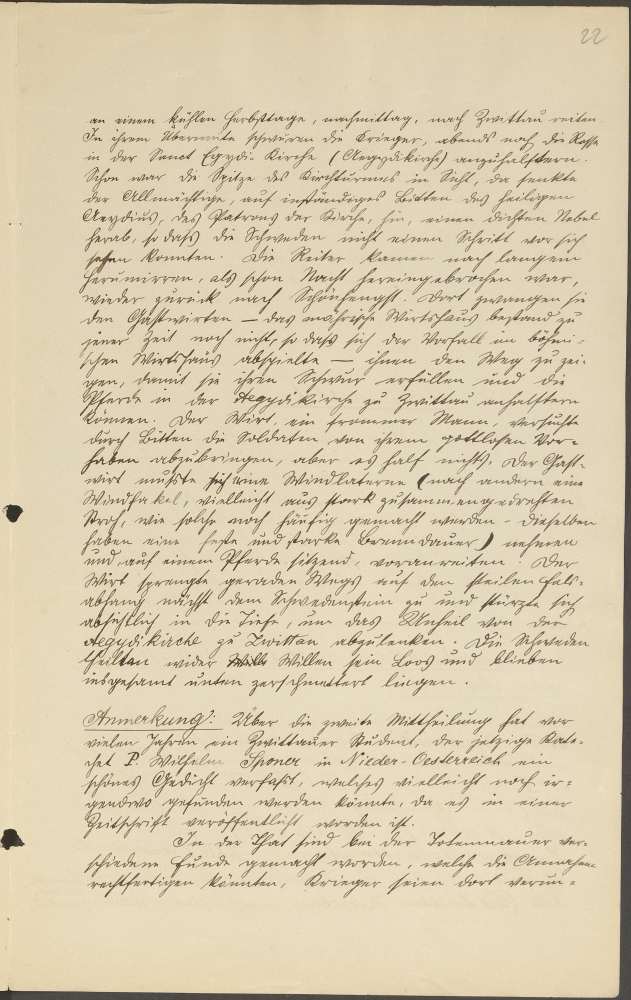 22
an einem kühlen Herbsttage, nachmittag, nach Zwittau reiten.
In ihrem Übermute schwuren die Krieger, abends noch die Rosse
in der Sanct Egydi-Kirche (Aegydikirche) anzuhalftern.
Schon war die Spitze des Kirchturmes in Sicht, da senkte
der Allmächtige, auf inständiges Bitten des heiligen
Aegydius, des Patrons der Kirche, hin, einen dichten Nebel
herab, so dass die Schweden nicht einen Schritt vor sich
sehen konnten. Die Reiter kamen nach langem
Herumirren, als schon Nacht hereingebrochen war,
wieder zurück nach Schönhengst. Dort zwangen sie
den Gastwirten — das mährische Wirtshaus bestand zu
jener Zeit noch nicht, so dass sich der Vorfall im böhmi-
schen Wirtshaus abspielte — ihnen den Weg zu zei-
gen, damit sie ihren Schwur erfüllen und die
Pferde in der Aegydikirche zu Zwittau anhalftern
können. Der Wirt, ein frommer Mann, versuchte
durch Bitten die Soldaten von ihrem gottlosen Vor-
haben abzubringen, aber es half nichts. Der Gast-
wirt musste sich eine Windlaterne (nach andern eine
Windfakel, vielleicht aus stark zusammengedrehten
Stroh, wie solche noch häufig gemacht werden - dieselben
haben eine feste und starke Brenndauer) nehmen
und auf einem Pferde sitzend, voranreiten. Der
Wirt sprengte geraden Wegs auf den steilen Fels-
abhang nächst dem Schwedenstein zu und stürzte sich
absichtlich in die Tiefe, um das Unheil von der
Aegydikirche zu Zwittau abzulenken. Die Schweden
theilten wider Willen sein Loos und blieben
insgesamt unten zerschmettert liegen.
Anmerkung: Über die zweite Mittheilung hat vor
vielen Jahren ein Zwittauer Student, der jetzige Kate-
chet P. Wilhelm Sponer in Nieder-Oesterreich ein
schönes Gedicht verfasst, welches vielleicht noch ir-
gendwo gefunden werden könnte, da es in einer
Zeitschrift veröffentlicht worden ist.
In der That sind bei der Totenmauer ver-
schiedene Funde gemacht worden, welche die Annahme
rechtfertigen könnten, Krieger seien dort verun-